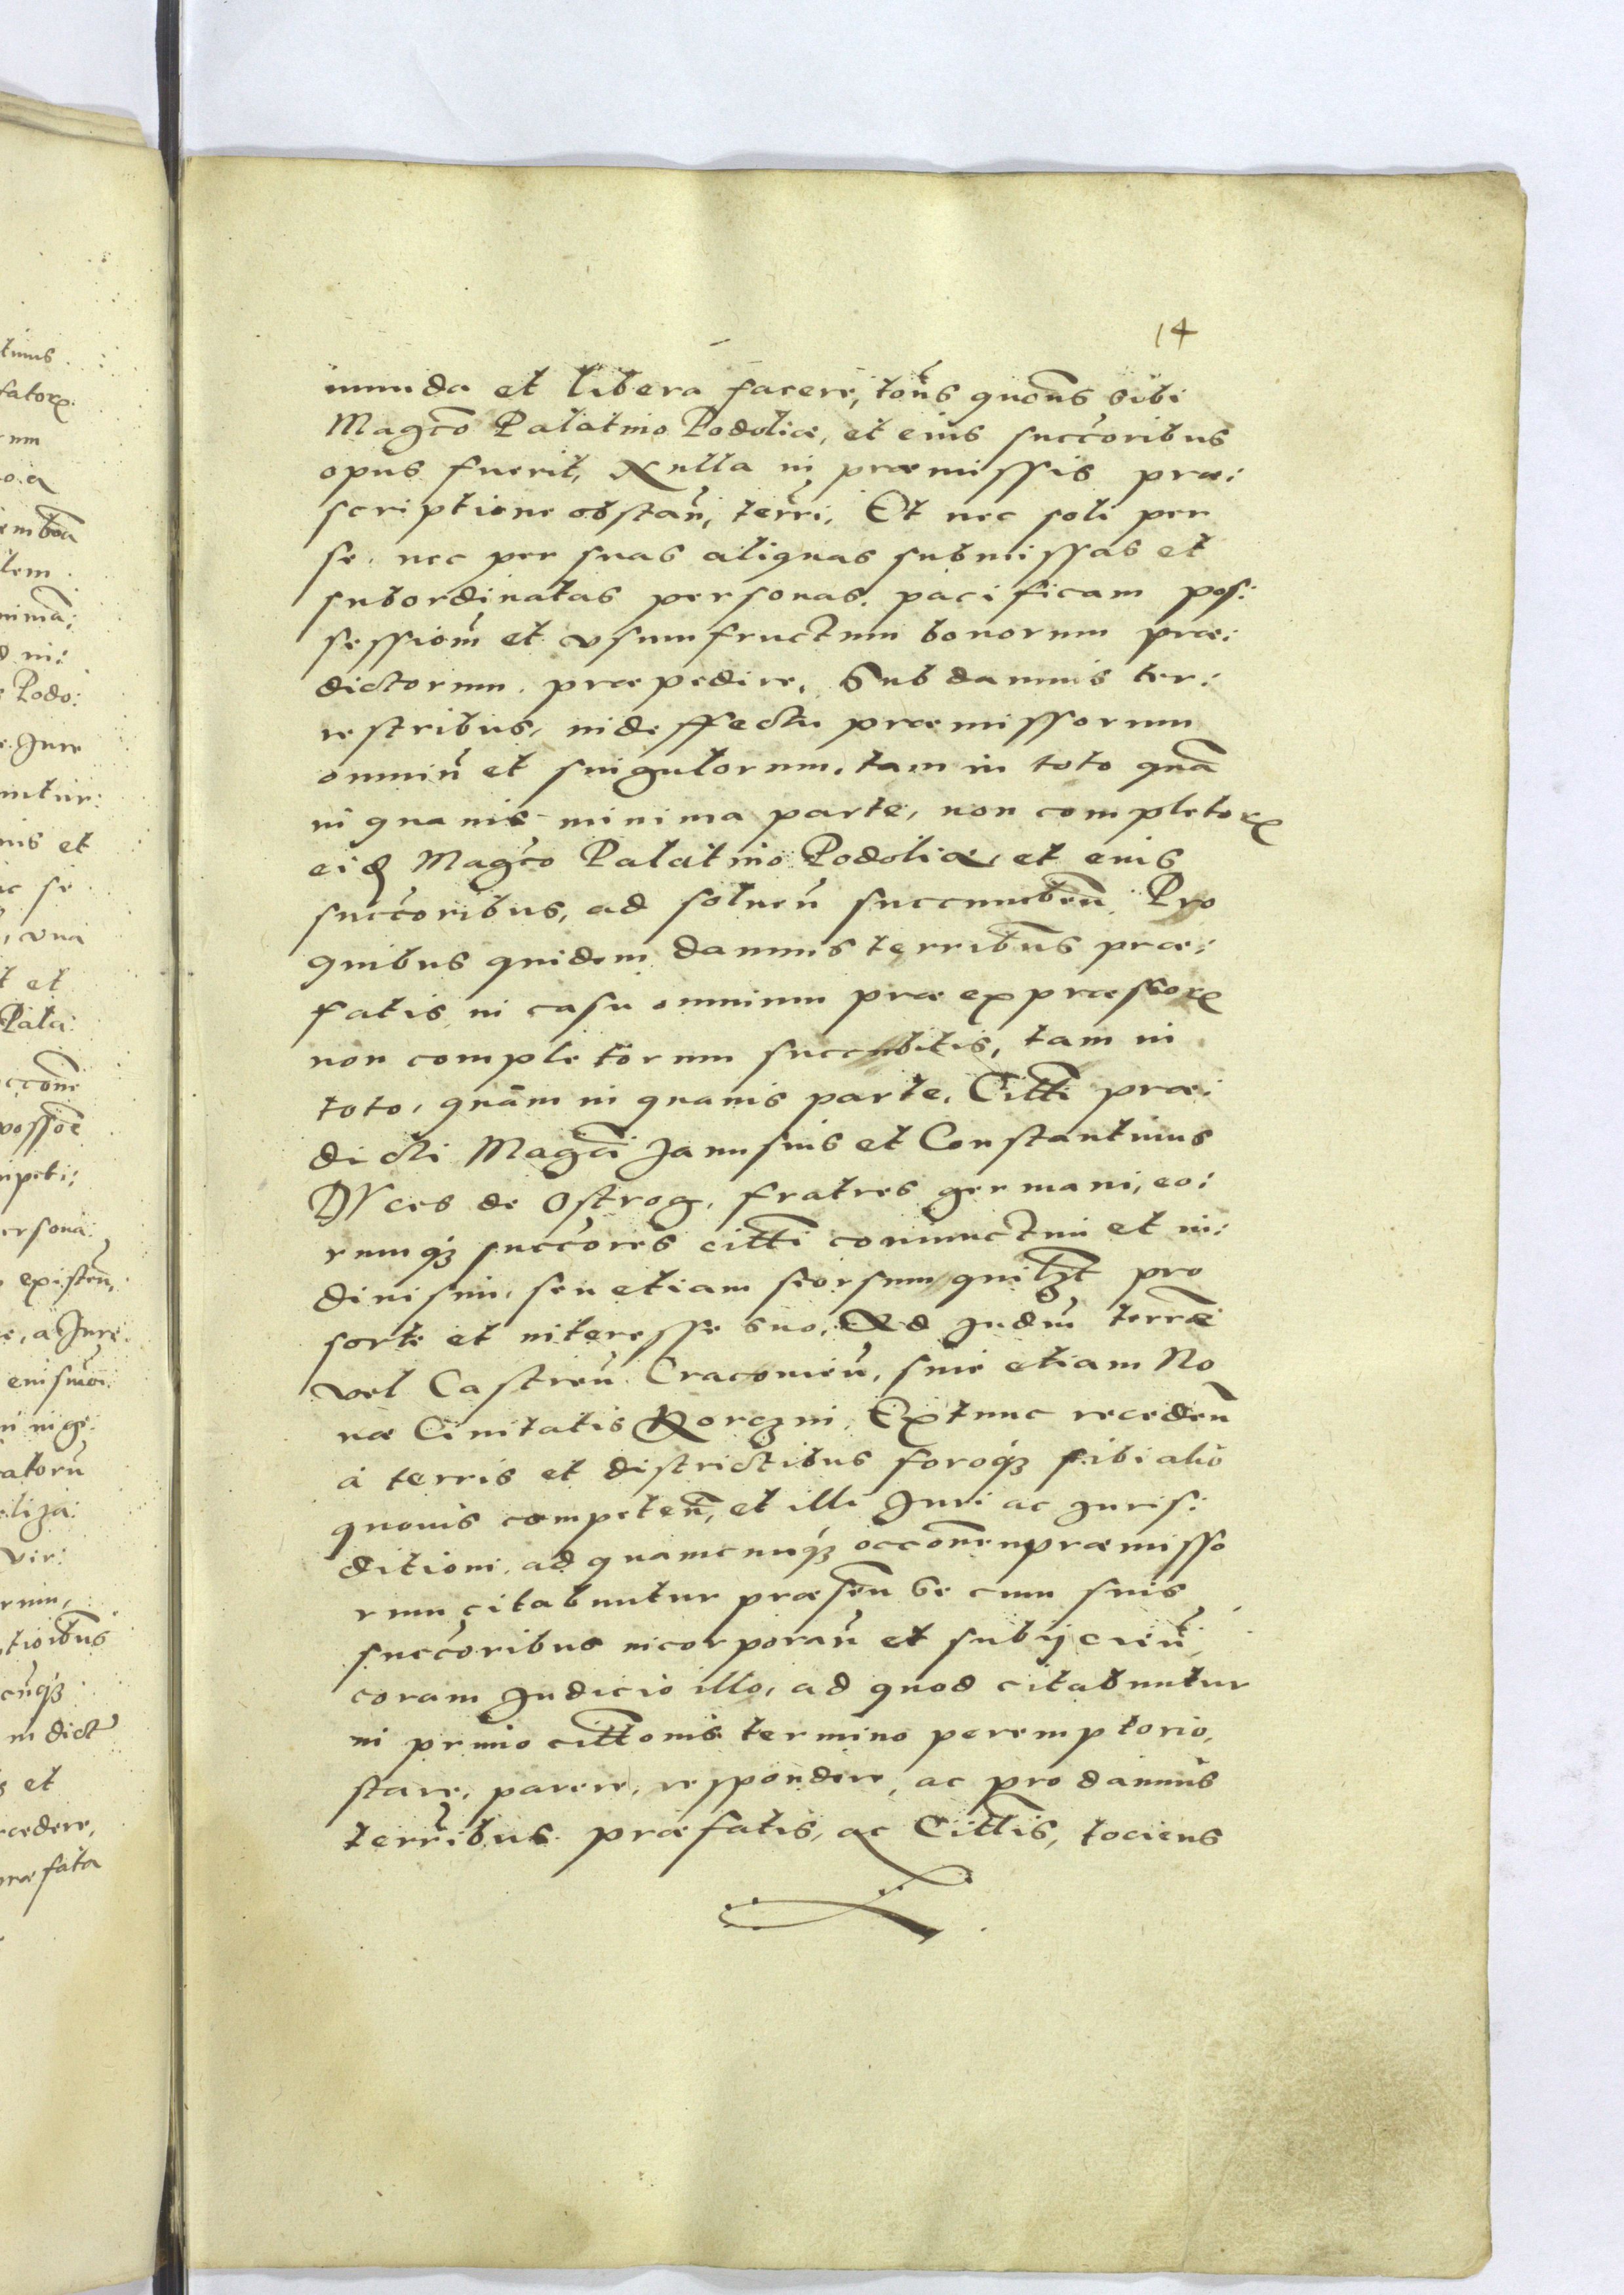 14
munda et libera facere, tōns quōns sibi
Magco Palatino Podoliæ, et eius succoribus
opus fuerit, Nulla in præmissis præ:
scriptione obstan̄, terri, Et nec soli per
se, nec per suas aliquas submissas et
subordinatas personas, pacificam pos:
sessiom̄ et vsumfructum bonorum præ:
dictorum, præpedire, Sub damnis ter:
restribus, in deffectu præmissorum
omnīn et singulorum, tam in toto quā
in quauis minima parte, non completorꝝ
eid Magco Palatino Podoliæ, et eius
succoribus, ad soluen̄ succumben̄, Pro
quibus quidem damnis terribus præ:
fatis, in casu omnium præexpræssorꝝ
non completorum succubitis, tam in
toto, quàm in quauis parte, Citti præ:
dicti Magci Janusius et Constantinus
Duces de Ostrog, fratres germani, eo:
rumqȝ succores citti coniunctim et in:
diuisim, seu etiam seorsum quilȝt pro
sorte et interesse suo, Ad Judm̄ terræ
vel Castren̄ Cracouien̄, siue etiam No
uæ Ciuitatis Korczin, Extunc receden̄
à terris et districtibus foroqȝ sibi alio
quouis competen̄, et illi Juri ac Juris:
ditioni, ad quamcunqȝ occonem præmisso
rum citabuntur præsen̄ se cum suis
succoribus incorporan̄ et subijcien̄,
coram Judicio illo, ad quod citabuntur
in primo cittonis termino peremptorio,
stare, parere, respondere, ac pro damnis
terribus præfatis, ac Cittis, tociens